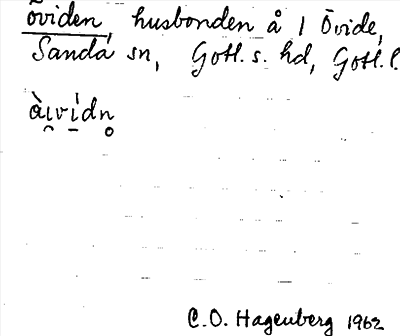 öviden, husbonden å 1 Övide,
Sanda sn, Gotl. s. hd, Gotl. l.
àı̯vı̠́dn̥
C.O. Hagenberg 1962